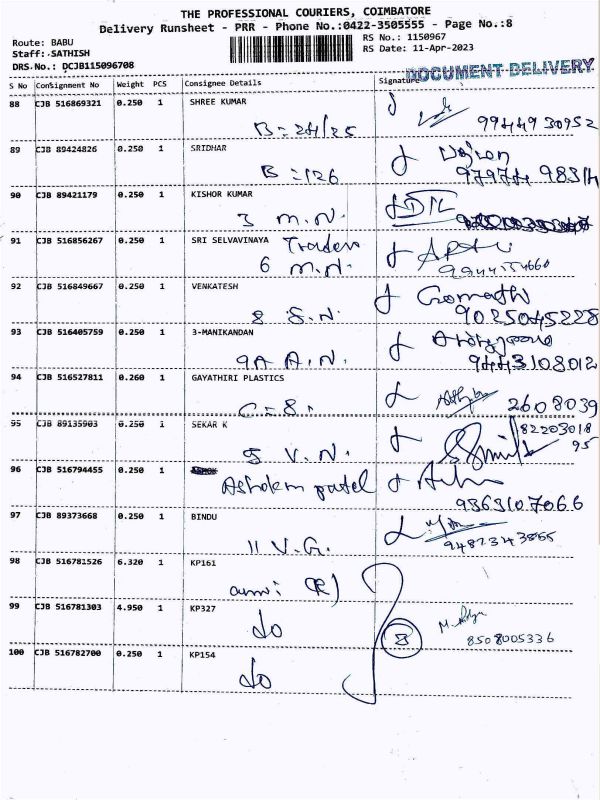 THE PROFESSIONAL COURIERS, COIMBATORE
Delivery Runsheet - PRR - Phone No.:0422-3505555 - Page No.:8
Route: BABU
Staff: SATHISH
DRS No.: DCJB115096708
RS No.: 1150967
RS Date: 11-Apr-2023
DOCUMENT DELIVERY
S No Consignment No Weight PCS Consignee Details Signature
88 CJB 516869321 0.250 1 SHREE KUMAR
B=24/25 9944930952
89 CJB 89424826 0.250 1 SRIDHAR
B=126 97974 98314
90 CJB 89421179 0.250 1 KISHOR KUMAR
3 M.N.
91 CJB 516856267 0.250 1 SRI SELVAVINAYA Traders
6 M.N.
92 CJB 516849667 0.250 1 VENKATESH Gomathi
8 S.N. 9025045228
93 CJB 516405759 0.250 1 3-MANIKANDAN
9A A.N. 9443108012
94 CJB 516527811 0.260 1 GAYATHIRI PLASTICS
C=8. 2608039
95 CJB 89135903 0.250 1 SEKAR K 82203018
5 V.N. 95
96 CJB 516794455 0.250 1
Ashokm patel 9863107066
97 CJB 89373668 0.250 1 BINDU
11 V.G. 9487343855
98 CJB 516781526 6.320 1 KP161
(R)
99 CJB 516781303 4.950 1 KP327
do 8508005336
100 CJB 516782700 0.250 1 KP154
do